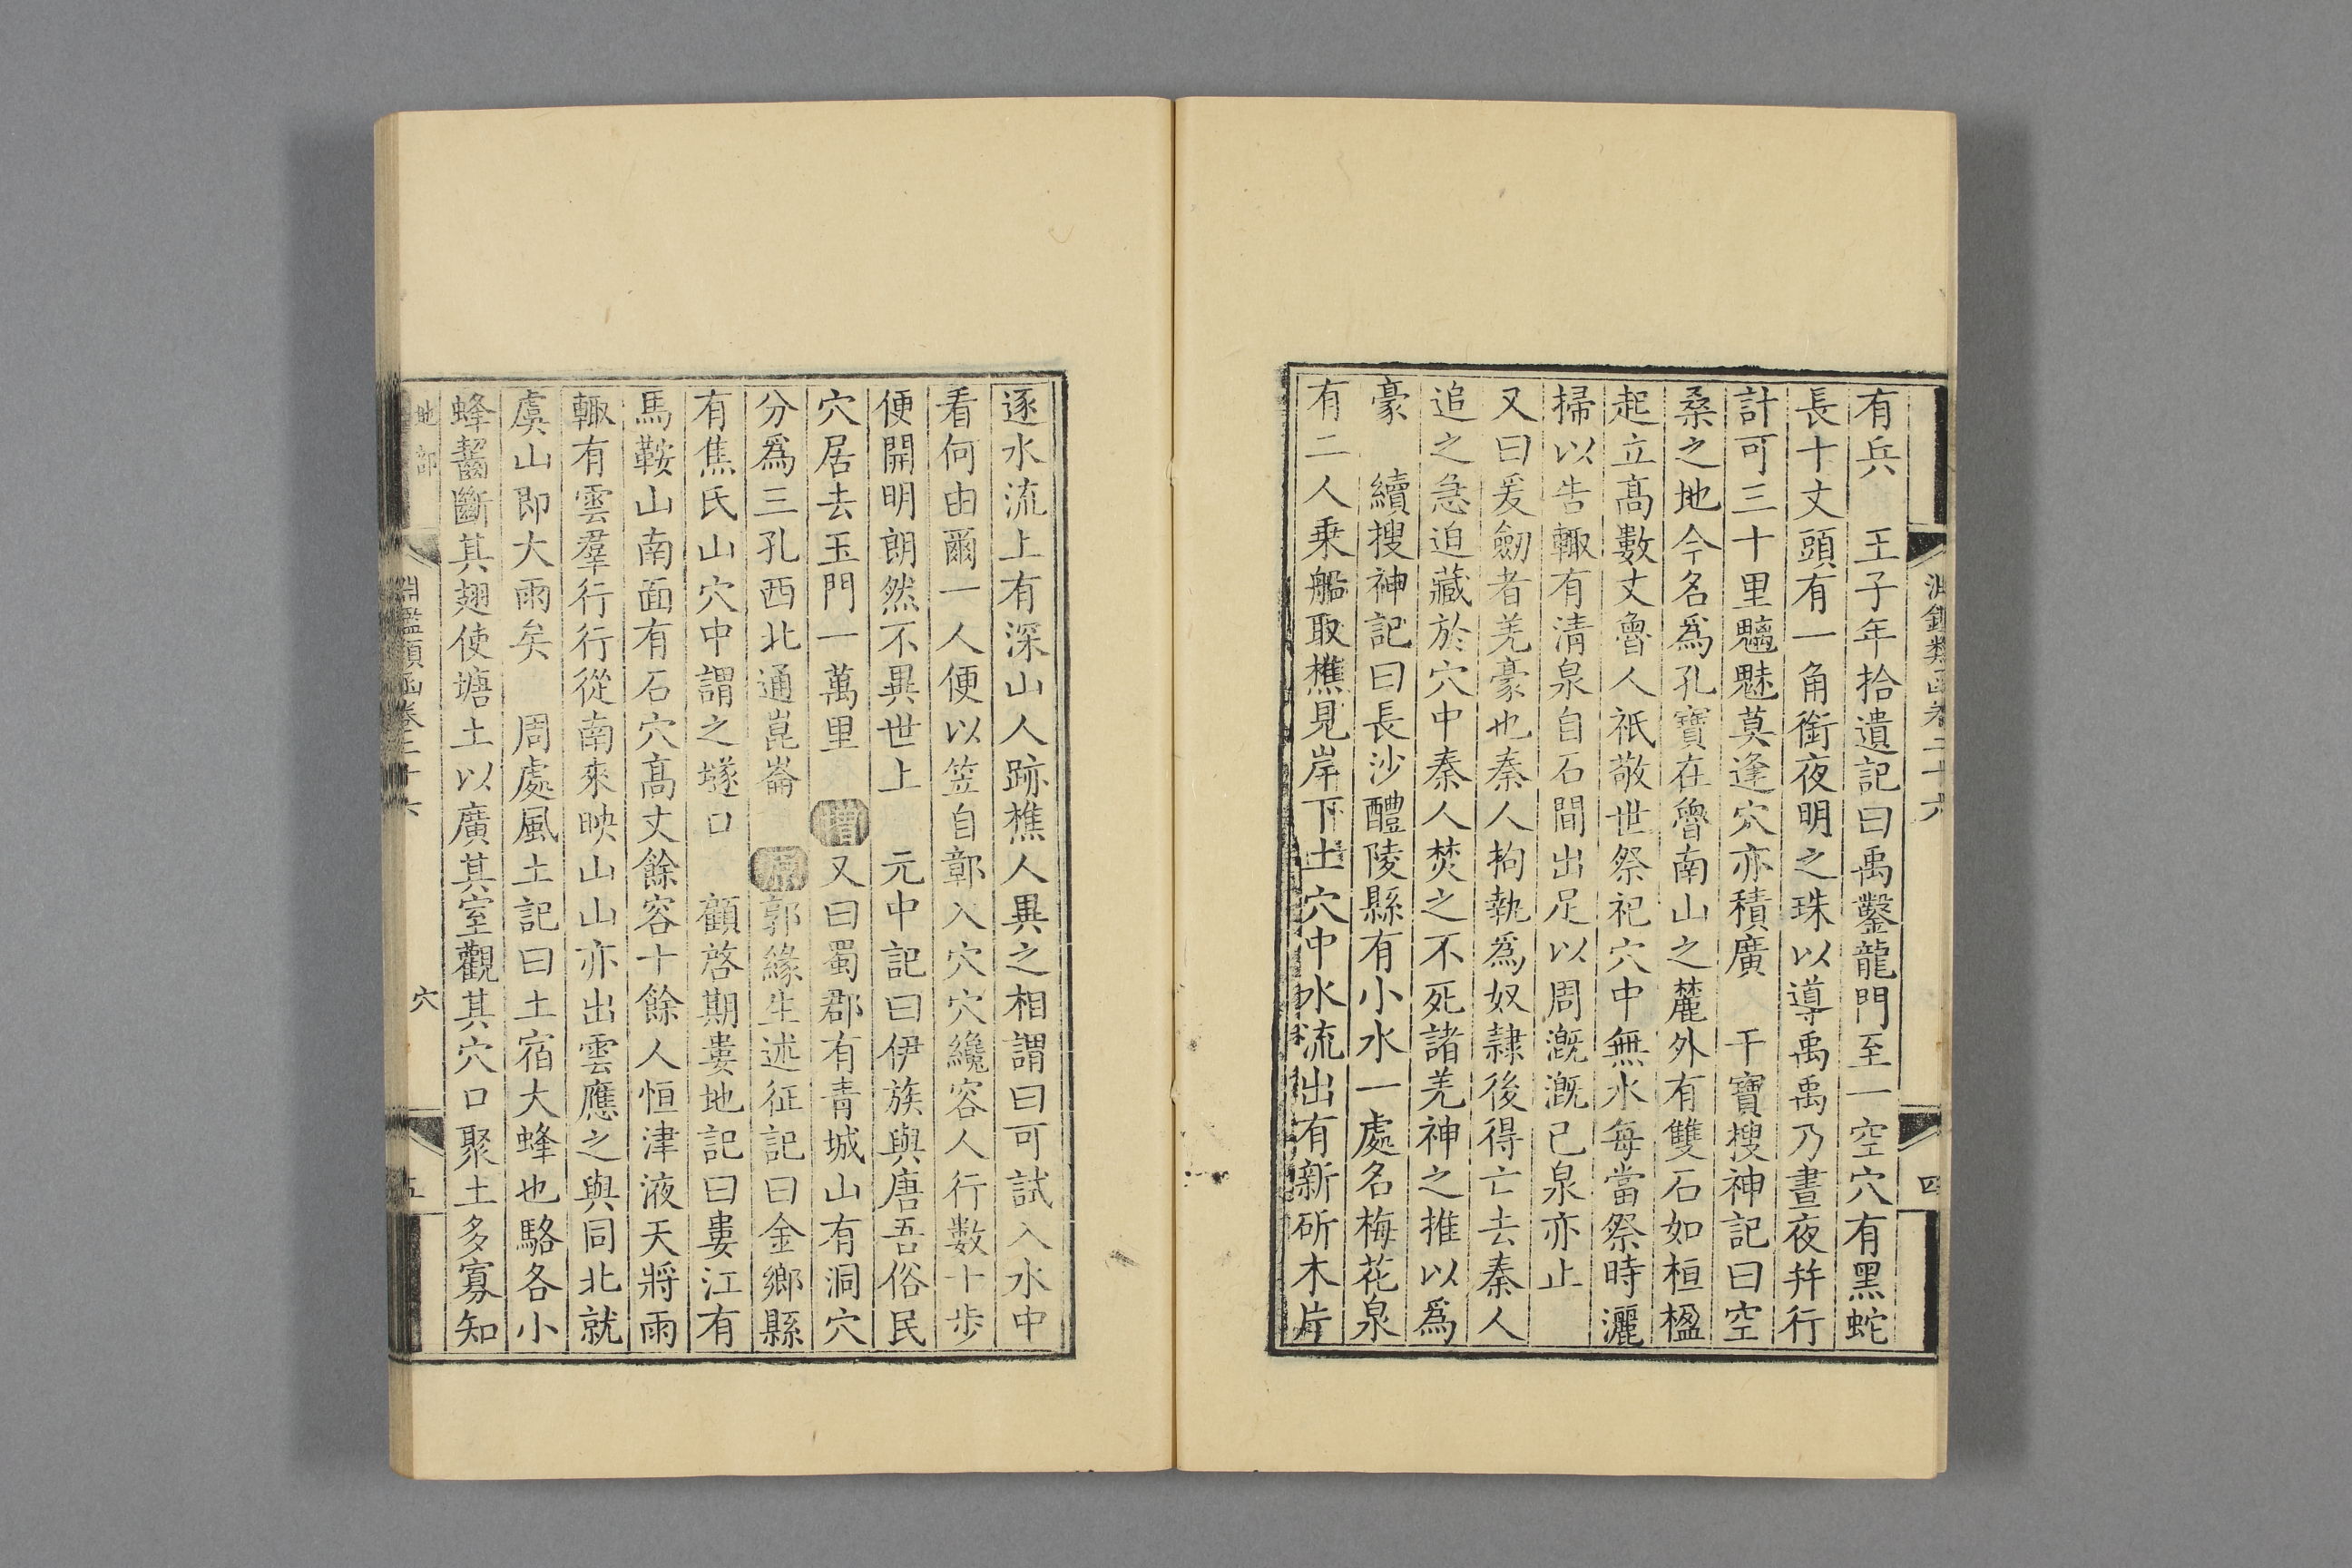 淵鑑類函卷二十六
四
有兵　王子年拾遺記曰禹鑿龍門至一空穴有黑蛇
長十丈頭有一角銜夜明之珠以導禹禹乃晝夜幷行
計可三十里魑魅莫逢穴亦積廣　干寶搜神記曰空
桑之地今名爲孔寶在魯南山之麓外有雙石如桓楹
起立高數丈魯人祇敬世祭祀穴中無水每當祭時灑
掃以告輒有清泉自石間出足以周溉溉已泉亦止
又曰爰劒者羌豪也秦人拘執爲奴隷後得亡去秦人
追之急迫藏於穴中秦人焚之不死諸羌神之推以爲
豪　續搜神記曰長沙醴陵縣有小水一處名梅花泉
有二人乗船取樵見岸下土穴中水流出有新斫木片
逐水流上有深山人跡樵人異之相謂曰可試入水中
看何由爾一人便以笠自鄣入穴穴纔容人行數十步
便開明朗然不異世上　元中記曰伊族與唐吾俗民
穴居去玉門一萬里　增又曰蜀郡有青城山有洞穴
分爲三孔西北通崑崙　原郭緣生述征記曰金鄉縣
有焦氏山穴中謂之墜口　顧啓期婁地記曰婁江有
馬鞍山南面有石穴高丈餘容十餘人恒津液天將雨
輒有雲羣行行從南來映山山亦出雲應之與同北就
虞山即大雨矣　周處風土記曰土宿大蜂也駱各小
蜂齧斷其翅使塘土以廣其室觀其穴口聚土多寡知
地部
淵鑑類函卷二十六
穴
五